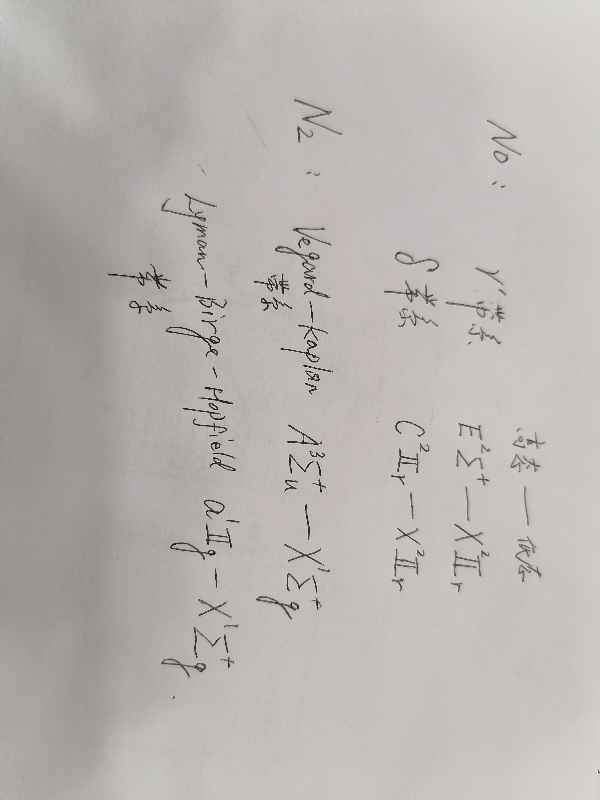 高态 — 低态
NO: γ′带系 E²Σ⁺ — X²Πᵣ
δ带系 C²Πᵣ — X²Πᵣ
N₂: Vegard-Kaplan A³Σ⁺u — X¹Σ⁺g
带系
Lyman-Birge-Hopfield a¹Πg - X¹Σ⁺g.
带系